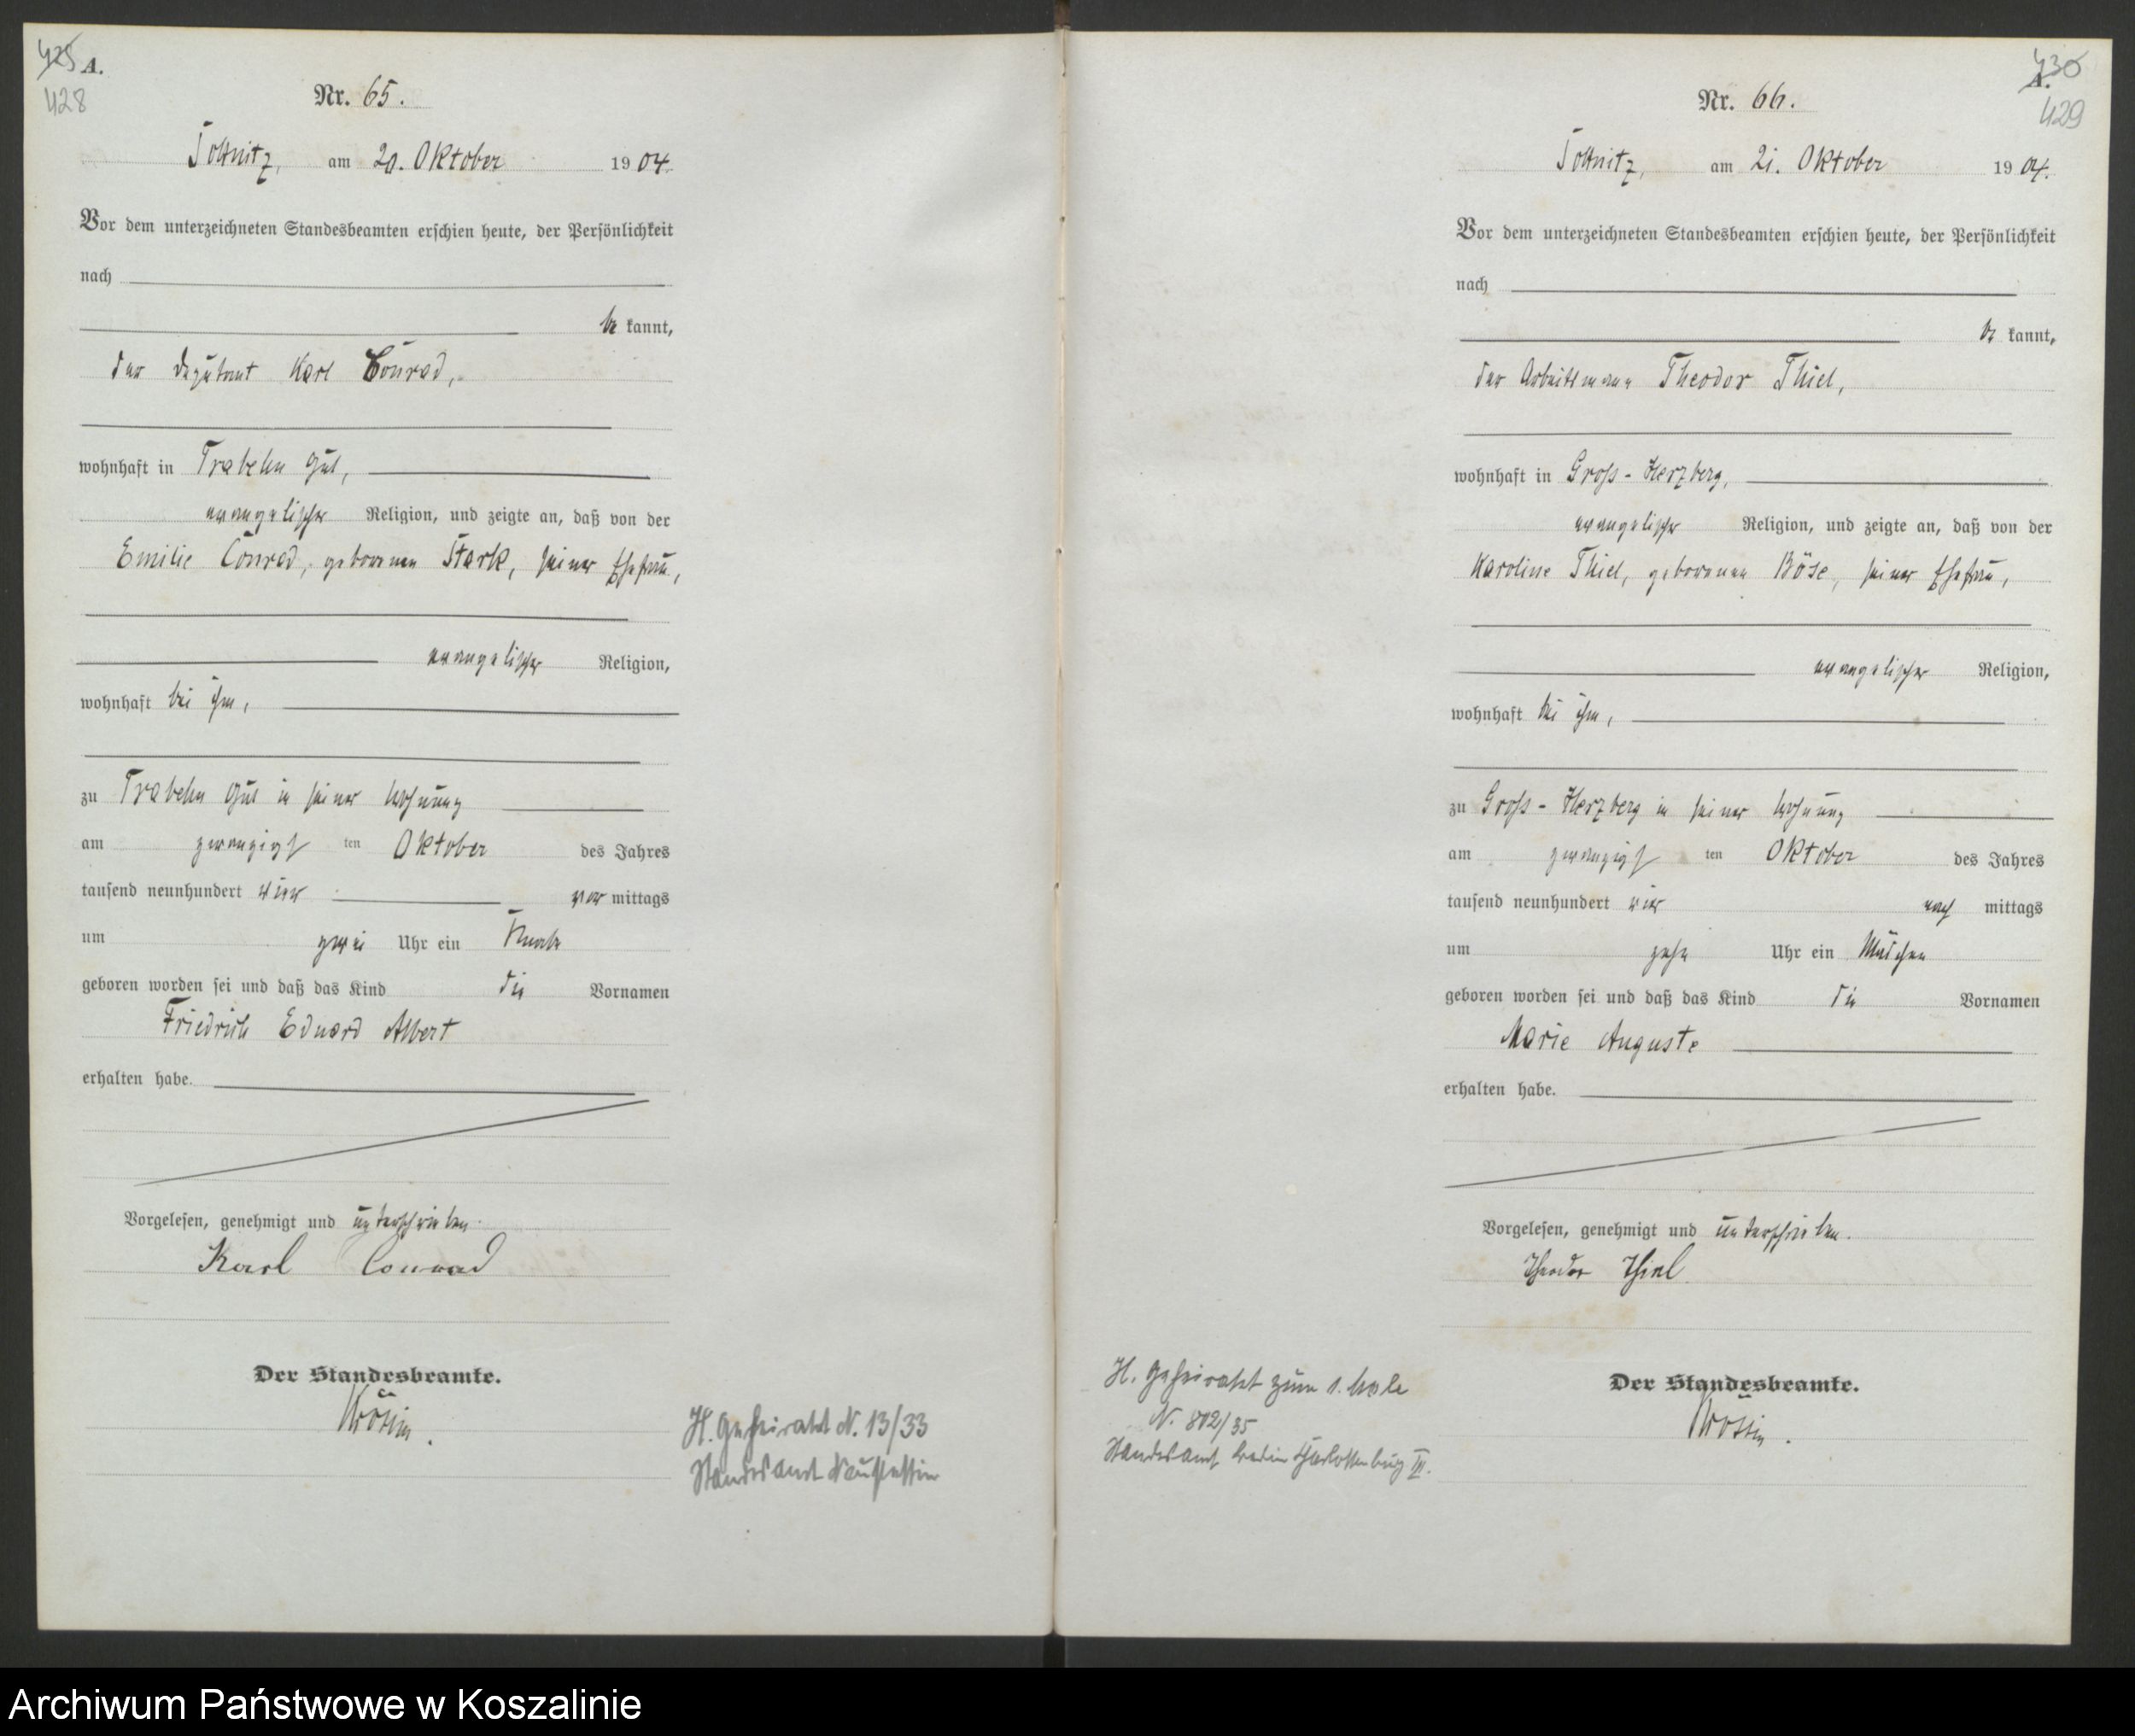 425 A.
428
Nr. 65.
Soltnitz, am 20. Oktober 1904.
Vor dem unterzeichneten Standesbeamten erschien heute, der Persönlichkeit
nach
be kannt,
der Deputant Karl Conrad,
wohnhaft in Trabehn Gut,
evangelischer Religion, und zeigte an, daß von der
Emilie Conrad, geborenen Stark, seiner Ehefrau,
evangelischer Religion,
wohnhaft bei ihm,
zu Trabehn Gut in seiner Wohnung
am zwanzigsten Oktober des Jahres
tausend neunhundert vier vor mittags
um zwei Uhr ein Knabe
geboren worden sei und daß das Kind die Vornamen
Friedrich Eduard Albert
erhalten habe.
Vorgelesen, genehmigt und unterschrieben.
Karl Conrad
Der Standesbeamte.
H. Geheiratet N. 13/33
Standesamt Neustettin
430
A.
429
Nr. 66.
Soltnitz, am 21. Oktober 1904.
Vor dem unterzeichneten Standesbeamten erschien heute, der Persönlichkeit
nach
be kannt,
der Arbeitsmann Theodor Thiel,
wohnhaft in Gross-Herzberg,
evangelischer Religion, und zeigte an, daß von der
Karoline Thiel, geborenen Böse, seiner Ehefrau,
evangelischer Religion,
wohnhaft bei ihm,
zu Gross-Herzberg in seiner Wohnung
am zwanzigsten Oktober des Jahres
tausend neunhundert vier nach mittags
um zehn Uhr ein Mädchen
geboren worden sei und daß das Kind die Vornamen
Marie Auguste
erhalten habe.
Vorgelesen, genehmigt und unterschrieben.
Theodor Thiel
Der Standesbeamte.
H. Geheiratet zum 1. Male
N. 802/35
Standesamt Berlin Charlottenburg III.
Archiwum Państwowe w Koszalinie